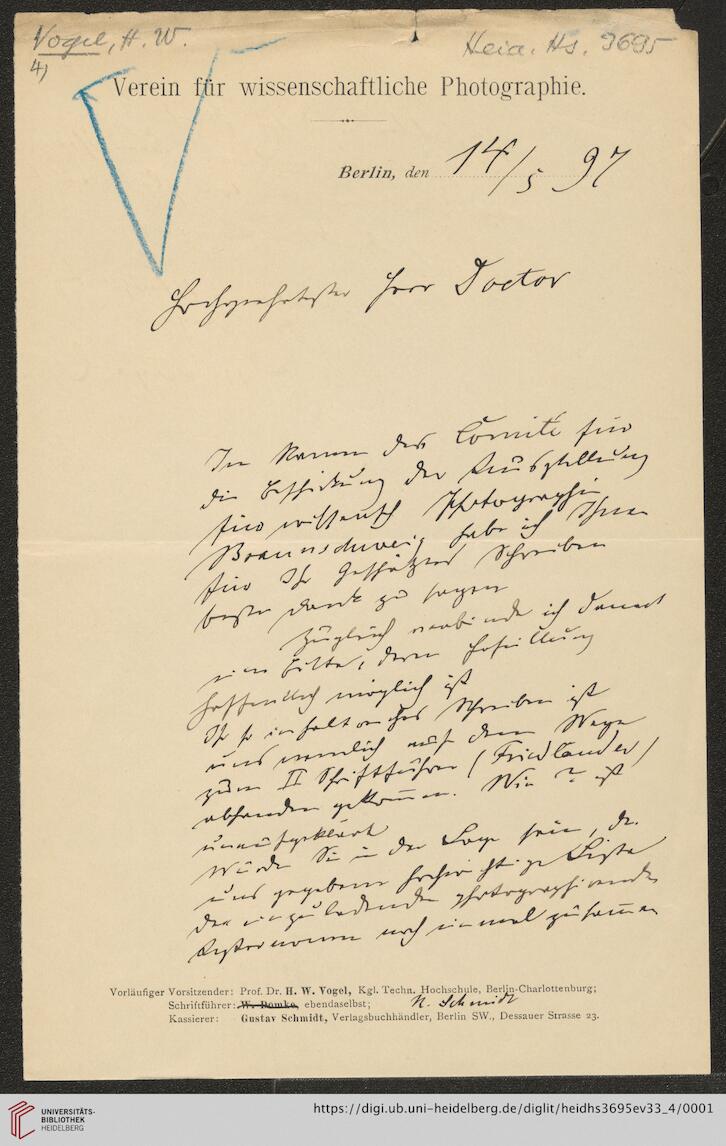 Vogel, H. W.
Heid. Hs. 3695
4)
Verein für wissenschaftliche Photographie.
Berlin, den 14/5 97
Hochgeehrtester Herr Doctor
Im Namen des Comité für
die Beschickung der Ausstellung
für wissensch Photographie
Braunschweig habe ich Ihnen
für Ihr geschätztes Schreiben
besten Dank zu sagen
Zugleich verbinde ich damit
eine Bitte, deren Erfüllung
hoffentlich möglich ist
Ihr so inhaltreiches Schreiben ist
uns nemlich auf dem Wege
zum II Schriftführer (Friedländer)
abhanden gekommen. Wie? ist
unaufgeklärt
Würden Sie in der Lage sein, die
uns gegebene Liste
der einzuladenden photographirenden
Astronomen noch einmal zusammen
Vorläufiger Vorsitzender: Prof. Dr. H. W. Vogel, Kgl. Techn. Hochschule, Berlin-Charlottenburg;
Schriftführer: W. Domke, ebendaselbst; N. Schmidt
Kassierer: Gustav Schmidt, Verlagsbuchhändler, Berlin SW., Dessauer Strasse 23.
UNIVERSITÄTS-
BIBLIOTHEK
HEIDELBERG
https://digi.ub.uni-heidelberg.de/diglit/heidhs3695ev33_4/0001